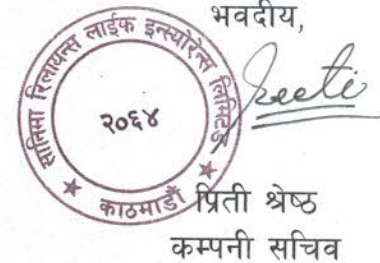 भवदीय,
सानिमा रिलायन्स लाईफ इन्स्योरेन्स लिमिटेड
२०६४
काठमाडौं
प्रिती श्रेष्ठ
कम्पनी सचिव